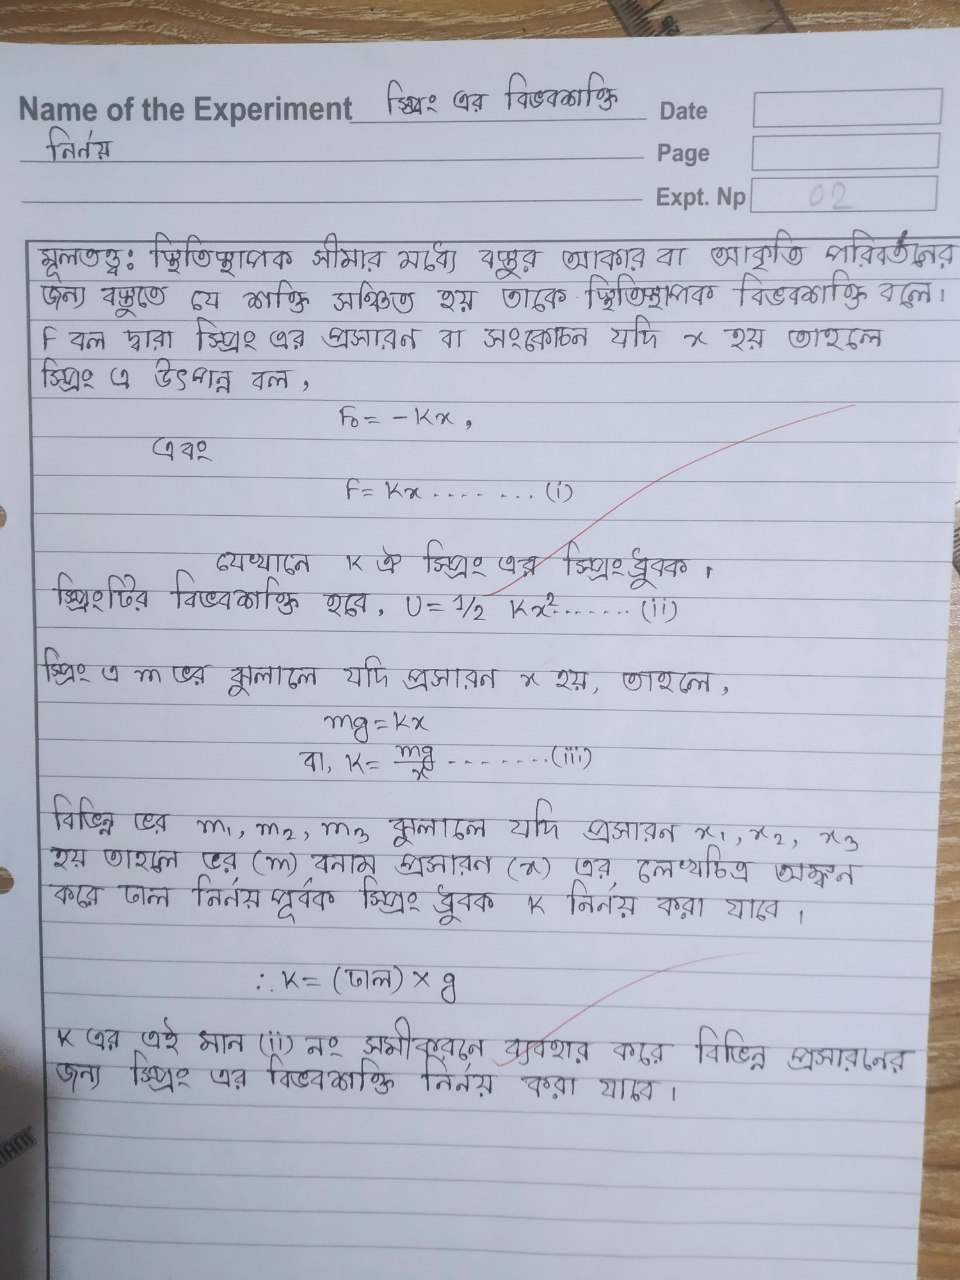 Name of the Experiment স্প্রিং এর বিভবশক্তি
নির্ণয়
Date
Page
Expt. Np 02
মূলতত্ত্ব: স্থিতিস্থাপক সীমার মধ্যে বস্তুর আকার বা আকৃতি পরিবর্তনের
জন্য বস্তুতে যে শক্তি সঞ্চিত হয় তাকে স্থিতিস্থাপক বিভবশক্তি বলে।
F বল দ্বারা স্প্রিং এর প্রসারন বা সংকোচন যদি x হয় তাহলে
স্প্রিং এ উৎপন্ন বল,
F₀ = -Kx,
এবং
F = Kx ....... (i)
যেখানে K ঐ স্প্রিং এর স্প্রিং ধ্রুবক।
স্প্রিংটির বিভবশক্তি হবে, U = 1/2 Kx² ....... (ii)
স্প্রিং এ m ভর ঝুলালে যদি প্রসারন x হয়, তাহলে,
mg = Kx
বা, K = mg/x ........(iii)
বিভিন্ন ভর m₁, m₂, m₃ ঝুলালে যদি প্রসারন x₁, x₂, x₃
হয় তাহলে ভর (m) বনাম প্রসারন (x) এর লেখচিত্র অঙ্কন
করে ঢাল নির্ণয় পূর্বক স্প্রিং ধ্রুবক K নির্ণয় করা যাবে।
∴ K = (ঢাল) × g
K এর এই মান (ii) নং সমীকরনে ব্যবহার করে বিভিন্ন প্রসারনের
জন্য স্প্রিং এর বিভবশক্তি নির্নয় করা যাবে।